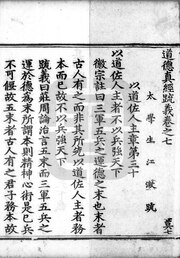 道德真經疏義卷之七
太學生江澂疏
以道佐人主章第三十
以道佐人主者不以兵強天下
徽宗註曰三軍五兵之運德之末也末者
古人有之而非其所先以道佐人主者務
本而已故不以兵強天下
疏義曰莊周論治言五末而三軍五兵之
運於德為末所謂本則精神心術是已兵
不可輕故五末者古人有之君子務本故